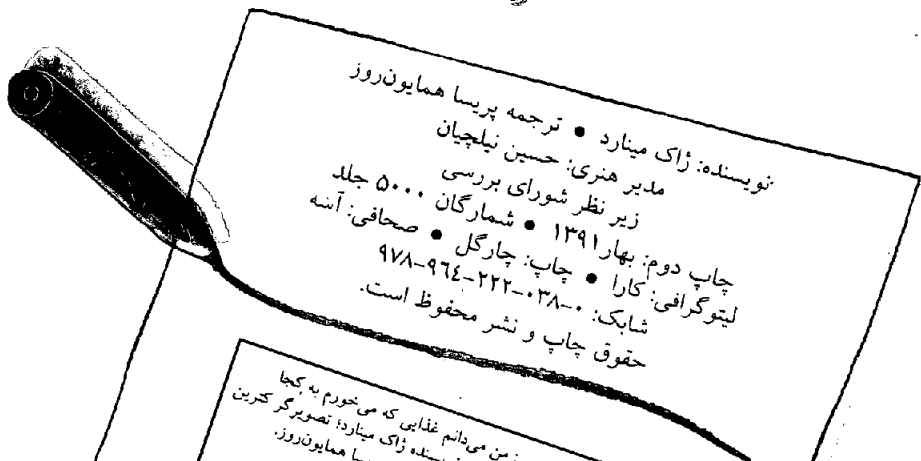 نویسنده: ژاک مینارد • ترجمه پریسا همایون‌روز
مدیر هنری: حسین نیلچیان
زیر نظر شورای بررسی
چاپ دوم: بهار ۱۳۹۱ • شمارگان ۵۰۰۰ جلد
لیتوگرافی: کارا • چاپ: چارگل • صحافی: آنسه
شابک: ۰-۰۳۸-۲۲۲-۹٦٤-۹۷۸
حقوق چاپ و نشر محفوظ است.
من می‌دانم غذایی که می‌خورم به کجا
ژاک مینارد؛ تصویرگر کترین
همایون‌روز.